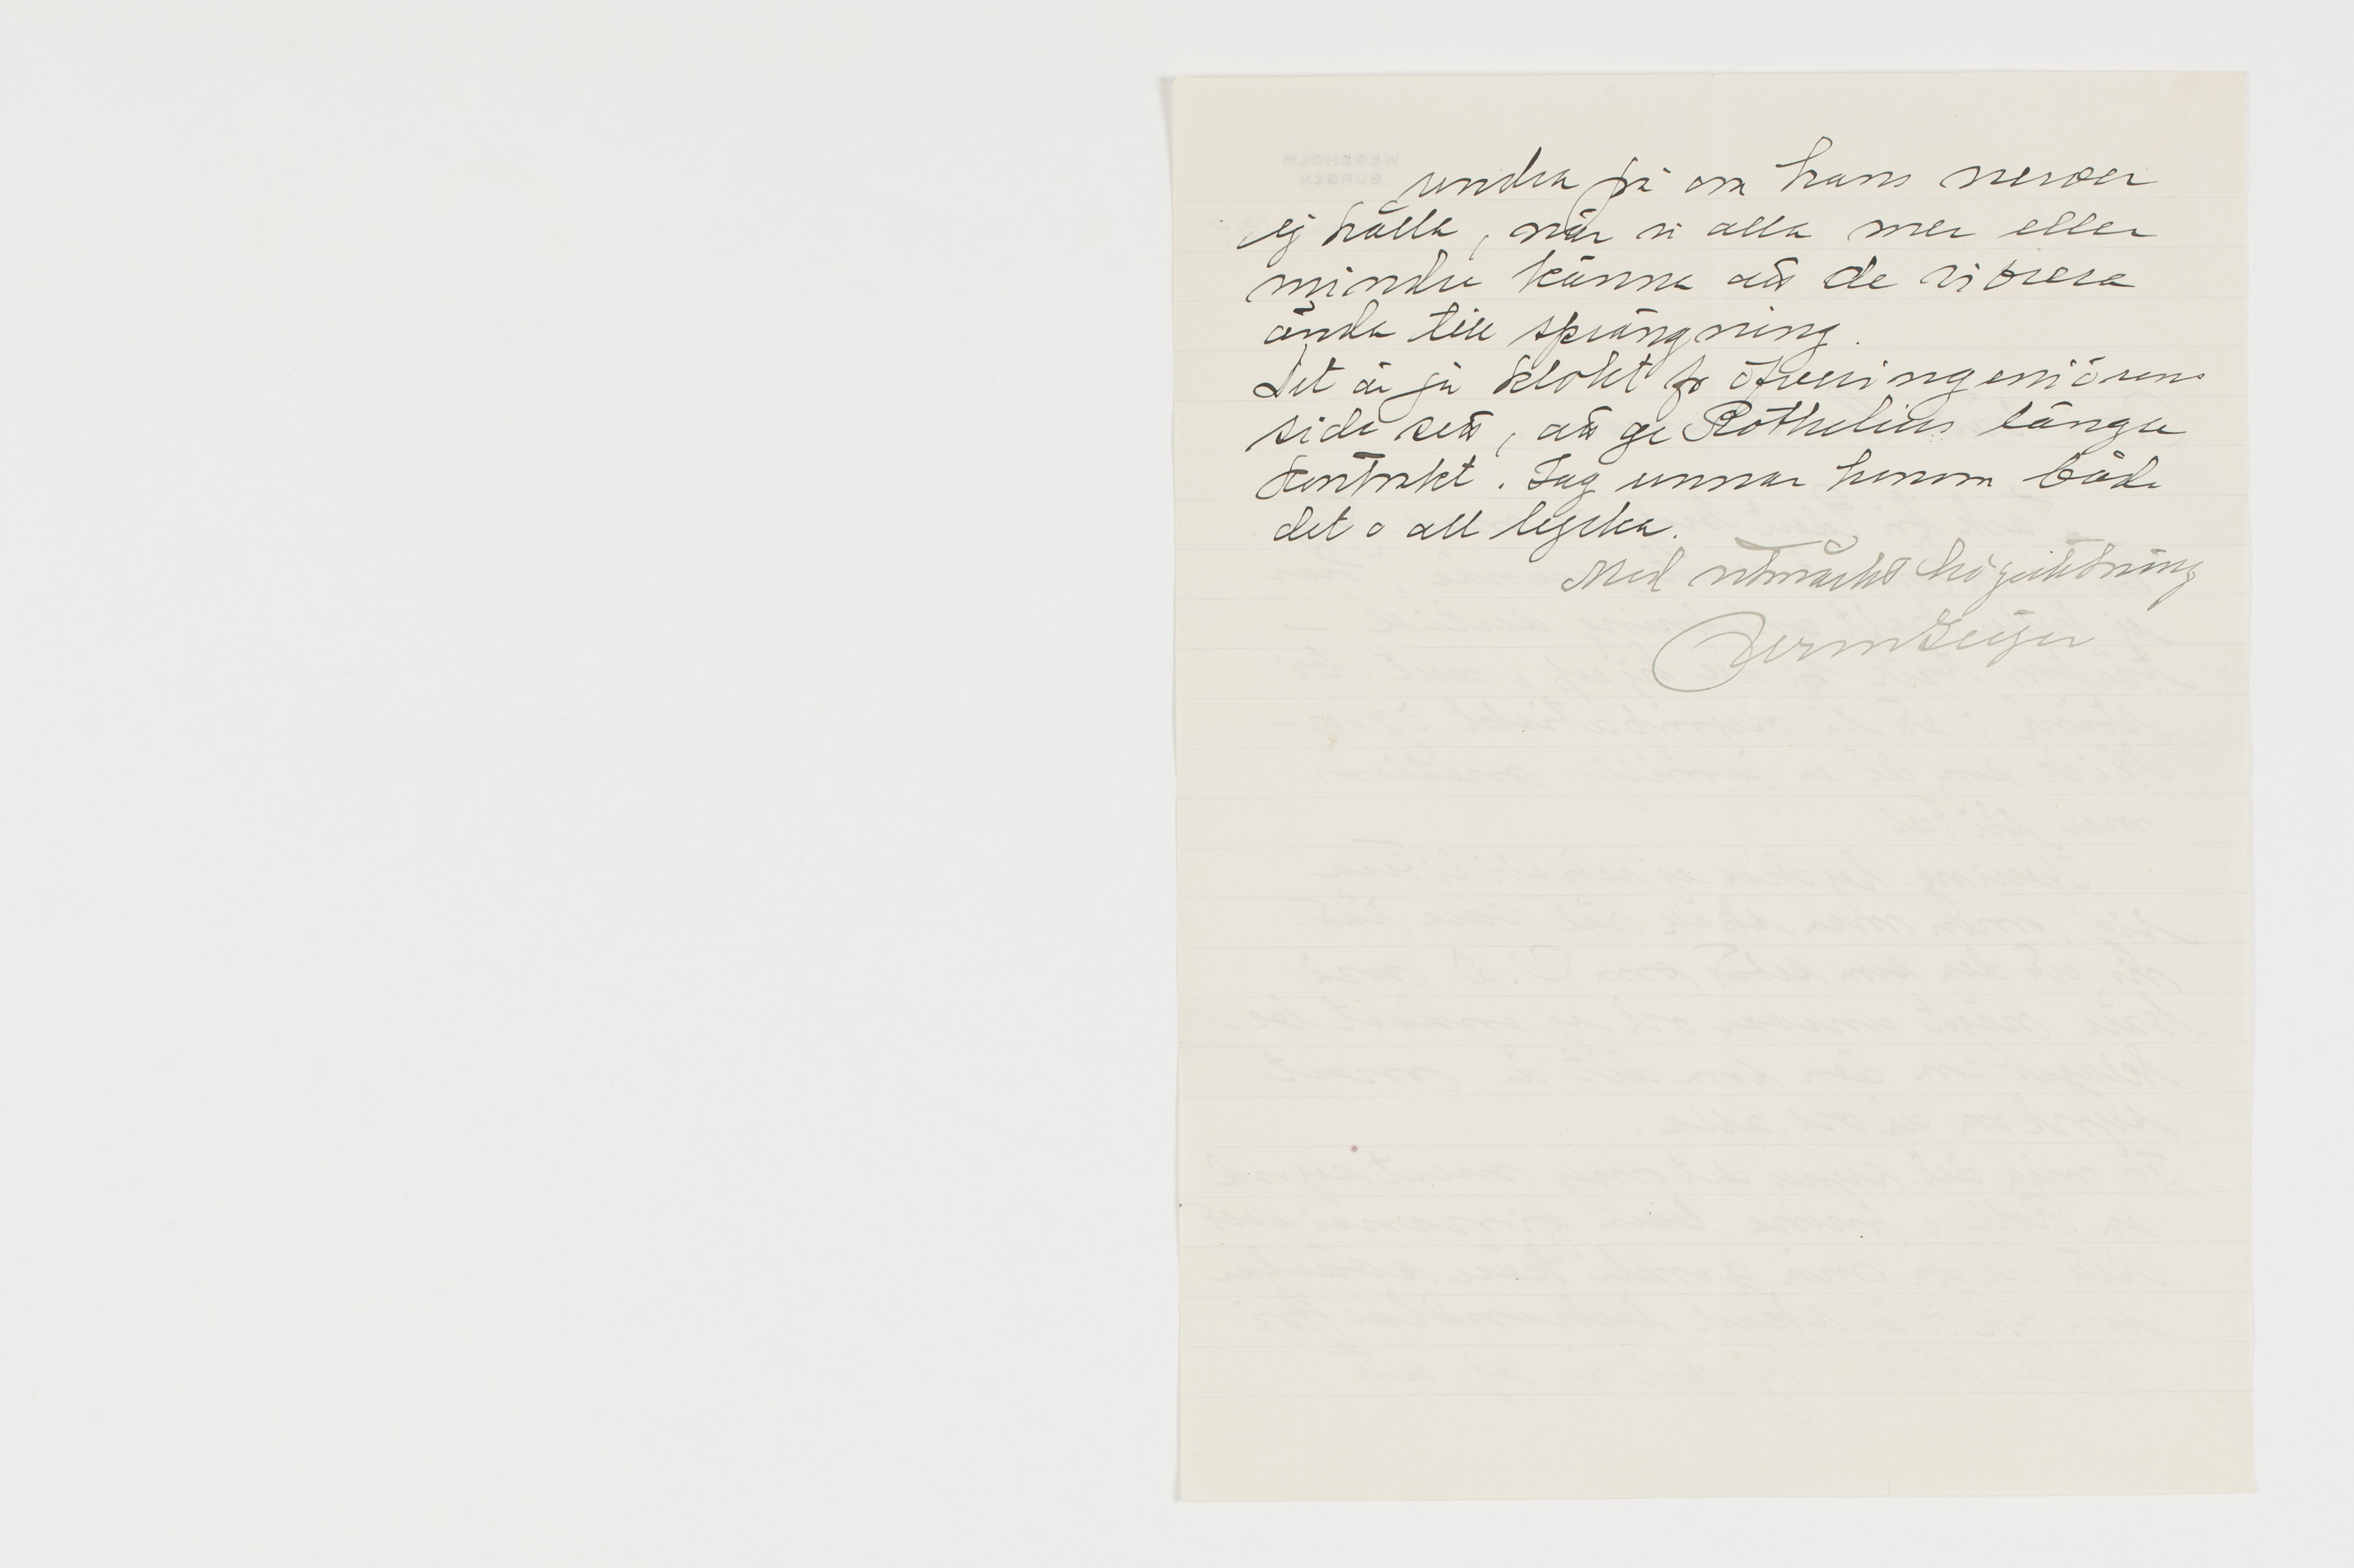 undra på om hans nerver
ej hålla, när vi alla mer eller
mindre känna att de vibrera
ända till sprängning.
Det är ju klokt fr öfveringeniörens
sida sett, att ge Rothelius långa
kontrakt. Jag unnar honom både
det o all lycka.
Med utmärkt högaktning